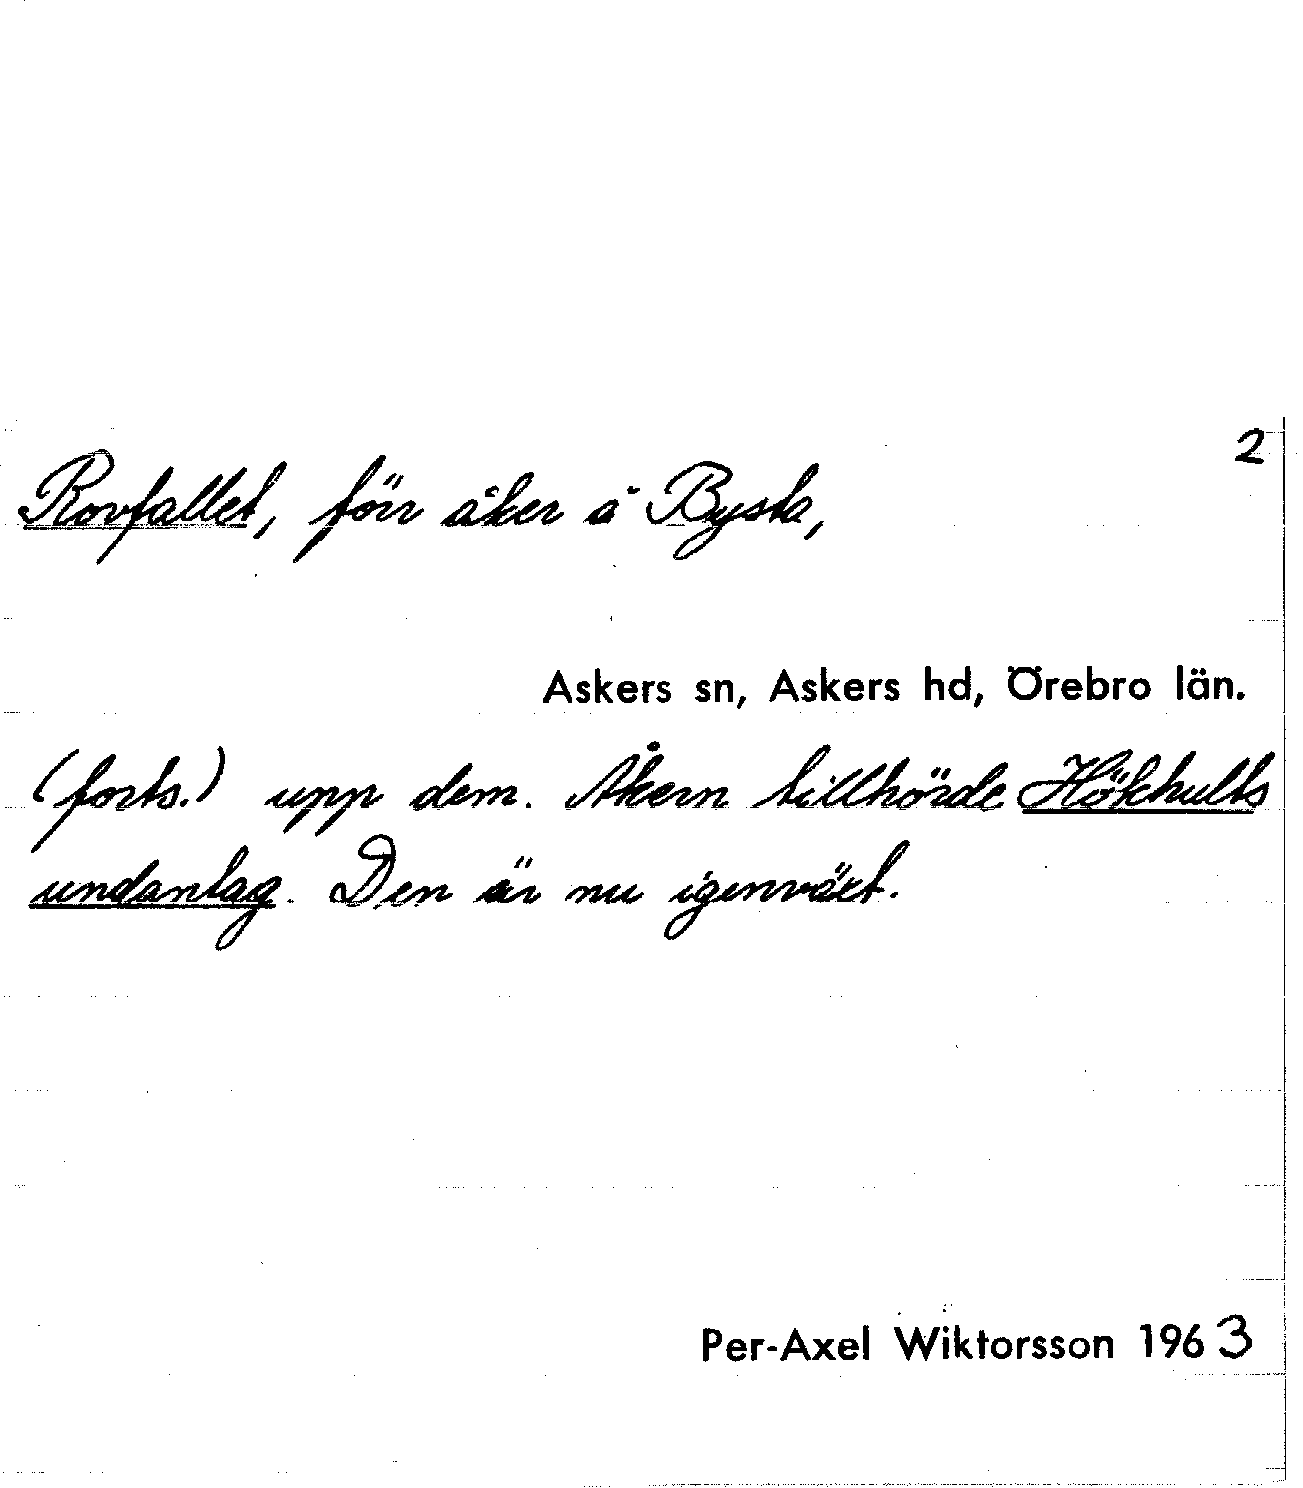 2
Rovfallet, förr åker å Bysta,
Askers sn, Askers hd, Örebro län.
(forts.) upp dem. Åkern tillhörde Hökhults
undantag. Den är nu igenväxt.
Per-Axel Wiktorsson 1963